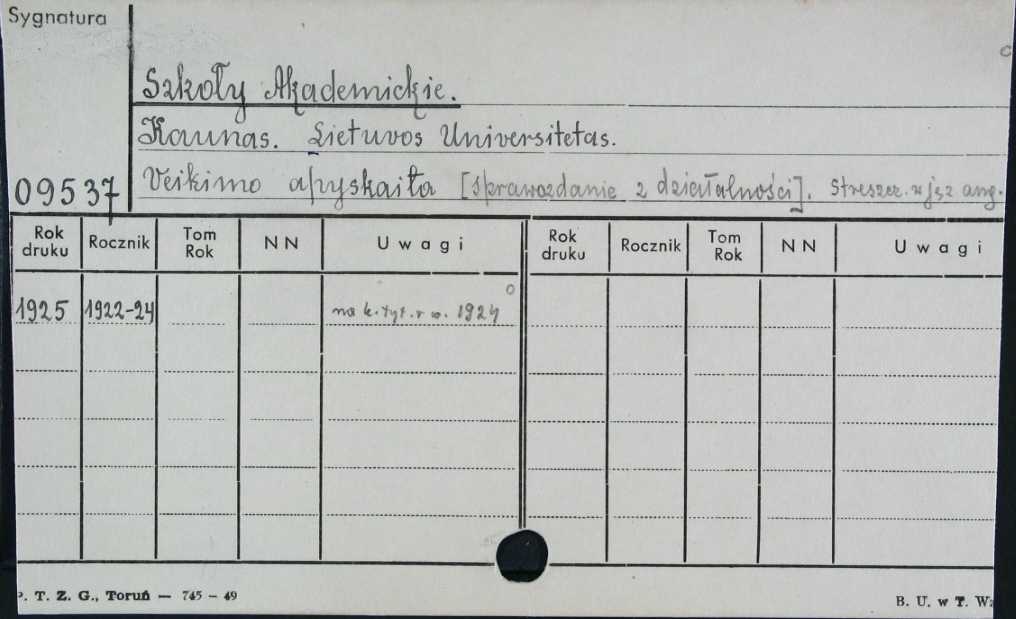 Sygnatura
Szkoły Akademickie.
Kaunas. Lietuvos Universitetas.
09537 Veikimo apyskaita [Sprawozdanie z działalności]. Streszcz. w jęz ang.
Rok druku Rocznik Tom Rok NN Uwagi Rok druku Rocznik Tom Rok NN Uwagi
1925 1922-24 na k. tyt. r w. 1924
P. T. Z. G., Toruń — 745 – 49
B. U. w T. W